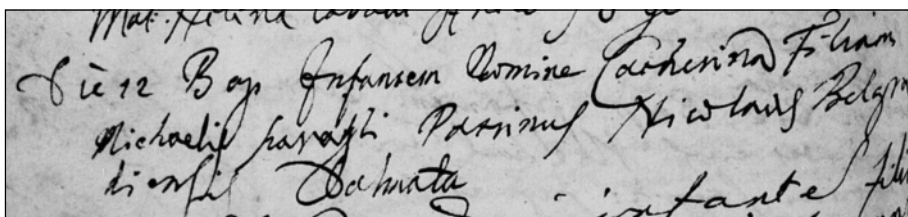 Mat. Helena
Die 12 Bap Infansem Nomine Catherina Filiam
Michaelis Patrinus Nicolaus Belgra
diensis Dalmata
infante fili